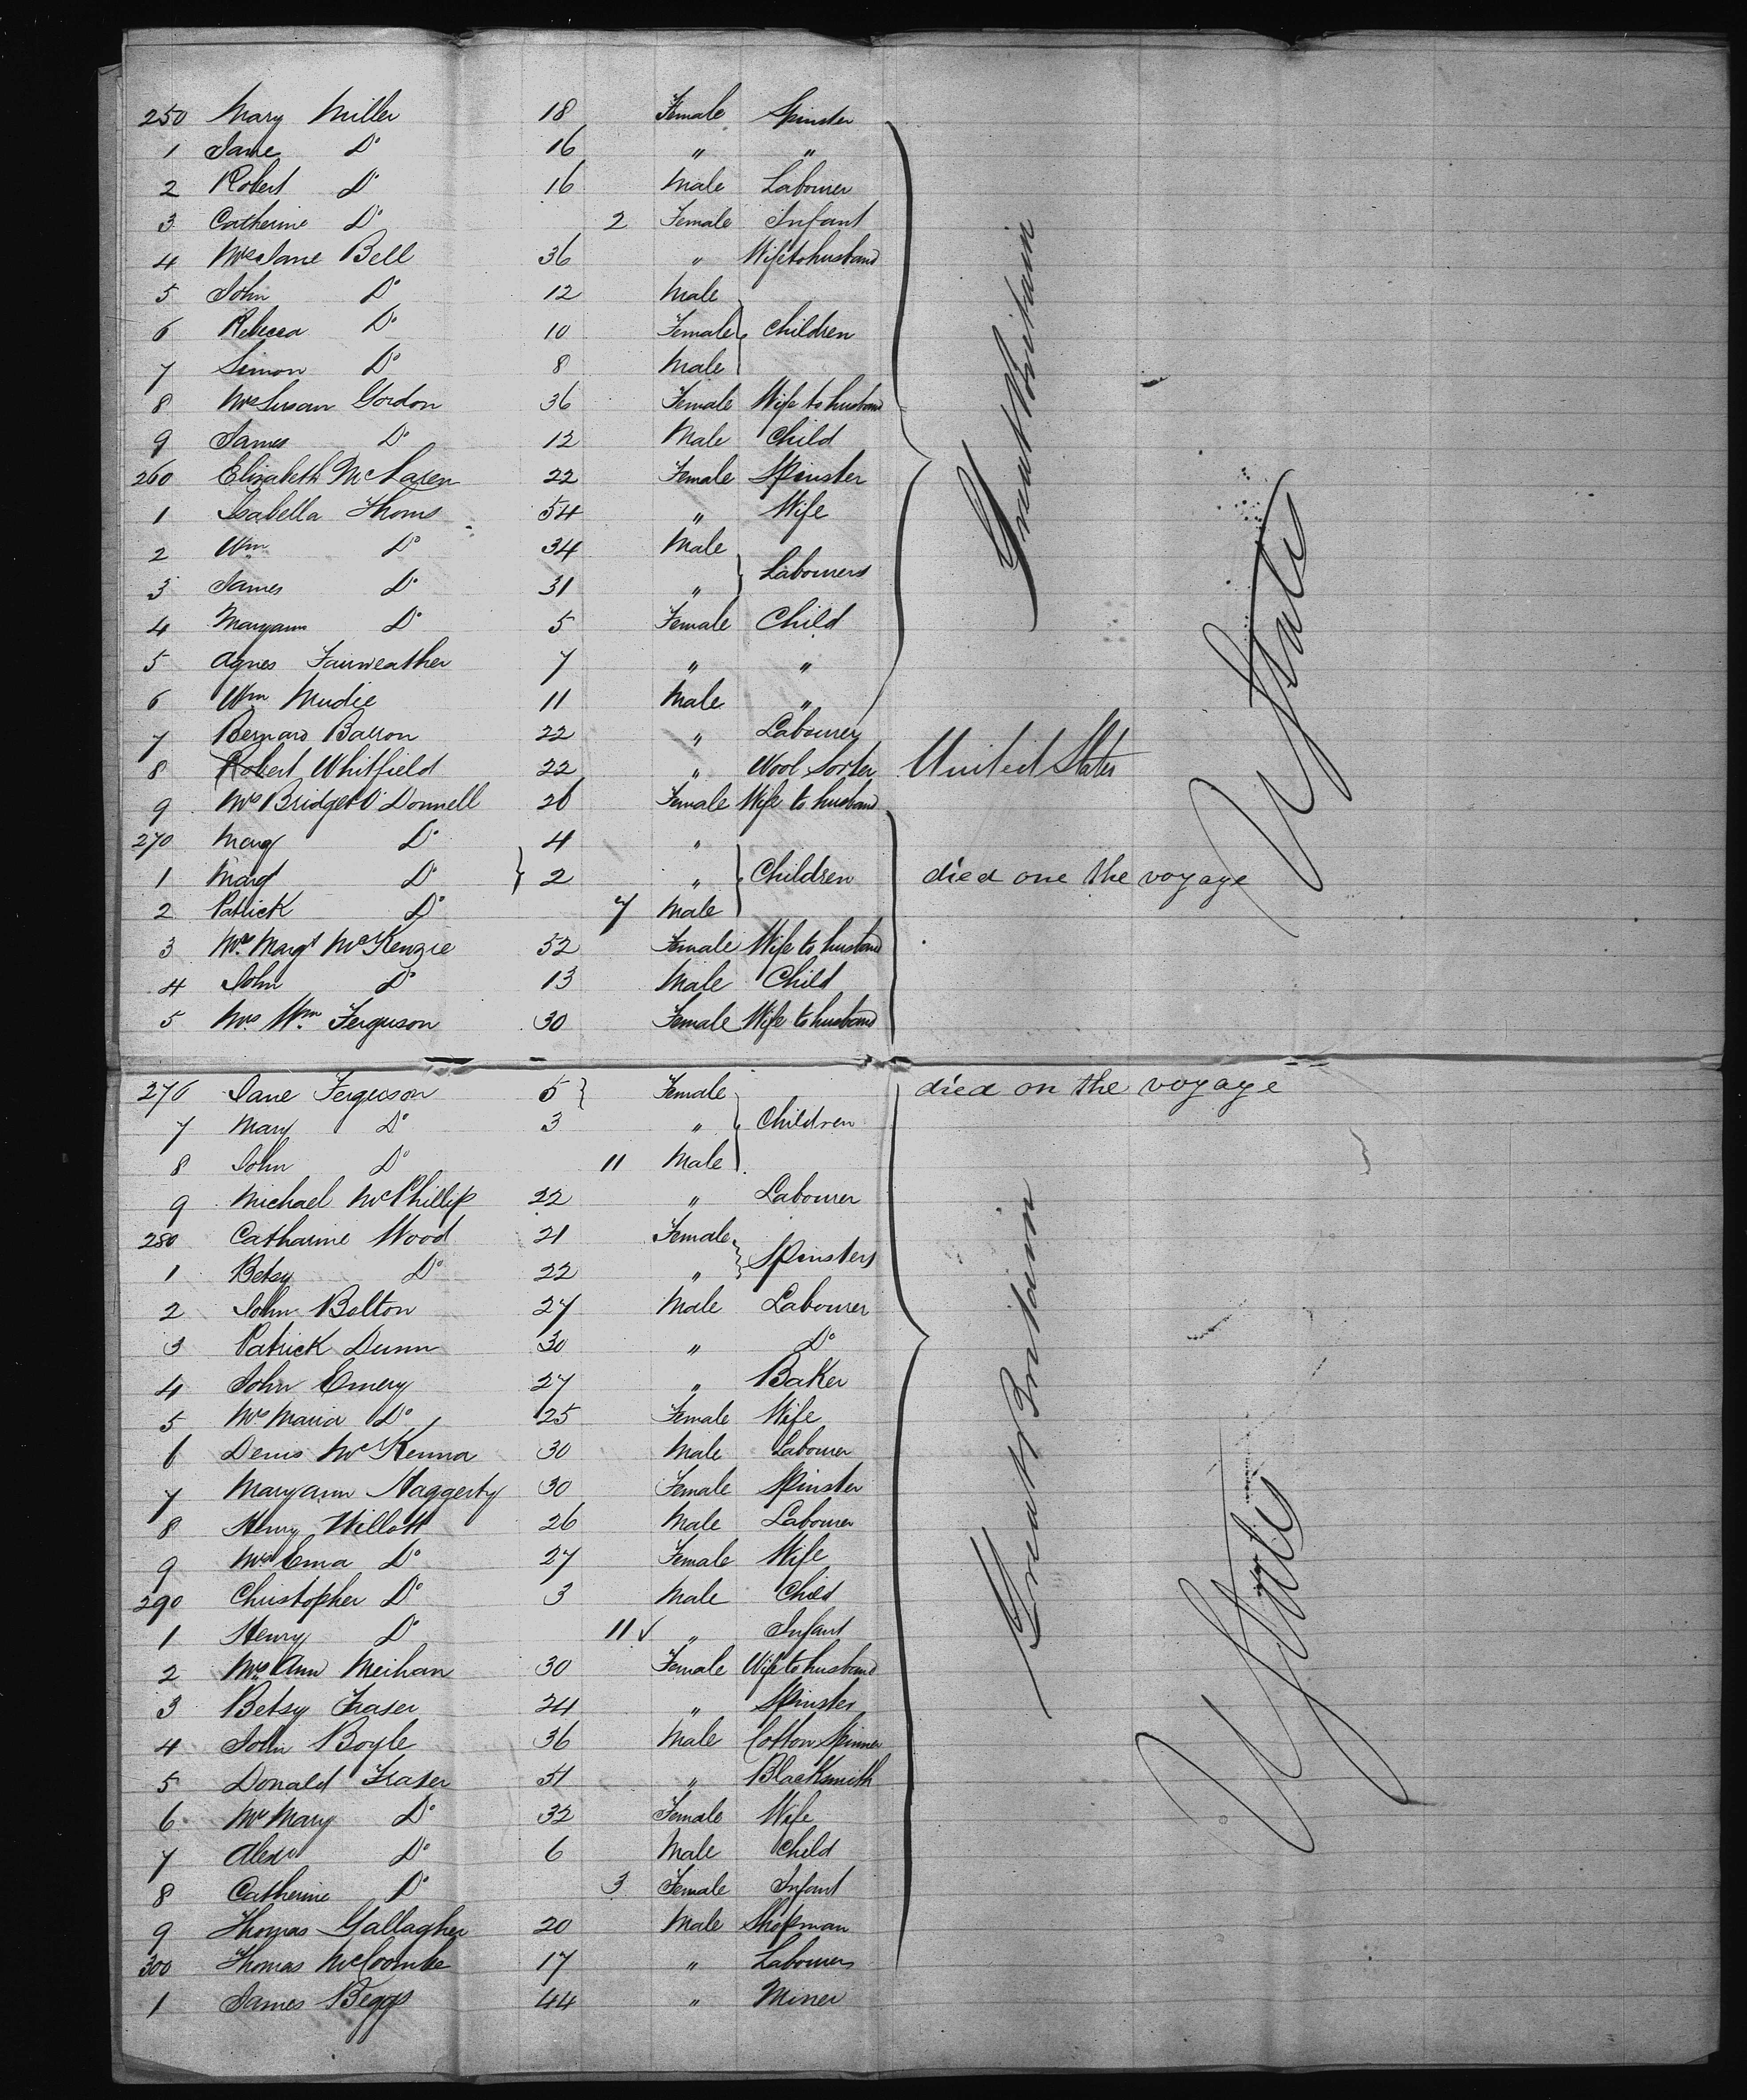 250 Mary Miller 18 Female Spinster
1 Jane Do 16 " "
2 Robert Do 16 Male Labourer
3 Catherine Do 2 Female Infant
4 Mrs Jane Bell 36 " Wife to husband
5 John Do 12 Male
6 Rebecca Do 10 Female Children
7 Simon Do 8 Male
8 Mrs Susan Gordon 36 Female Wife to husband
9 James Do 12 Male Child
260 Elizabeth McLaren 22 Female Spinster
1 Isabella Thoms 54 " Wife
2 Wm Do 34 Male
Labourers
3 James Do 31 "
4 Maryann Do 5 Female Child
5 Agnes Fairweather 7 " "
6 Wm Mudie 11 Male "
Great Britain
7 Bernard Barron 22 " Labourer
8 Robert Whitfield 22 " Wool Sorter United States
9 Mrs Bridget O'Donnell 26 Female Wife to husband
U States
270 Mary Do 4 "
1 Margt Do 2 " Children died one the voyage
2 Patrick Do 7 Male
3 Mrs Margt McKenzie 32 Female Wife to husband
4 John Do 13 Male Child
5 Mrs Wm Ferguson 30 Female Wife to husband
276 Jane Ferguson 5 Female died on the voyage
7 Mary Do 3 " Children
8 John Do 11 Male
9 Michael McPhillip 22 " Labourer
280 Catharine Wood 21 Female
Spinsters
1 Betsy Do 22 "
2 John Bolton 27 Male Labourer
3 Patrick Dunn 30 " Do
4 John Emery 27 " Baker
5 Mrs Maria Do 25 Female Wife
6 Denis McKenna 30 Male Labourer
7 Maryann Haggerty 30 Female Spinster
8 Henry Willott 26 Male Labourer
9 Mrs Ema Do 27 Female Wife
290 Christopher Do 3 Male Child
1 Henry Do 11 ✓ " Infant
2 Mrs Ann Meihan 30 Female Wife to husband
Great Britain
3 Betsy Fraser 24 " Spinster
4 John Boyle 36 Male Cotton Spinner
5 Donald Fraser 31 " Blacksmith
6 Mrs Mary Do 32 Female Wife
U States
7 Alexr Do 6 Male Child
8 Catherine Do 3 Female Infant
9 Thomas Gallagher 20 Male Shopman
300 Thomas McCoombe 17 " Labourers
1 James Beggs 44 " Miner